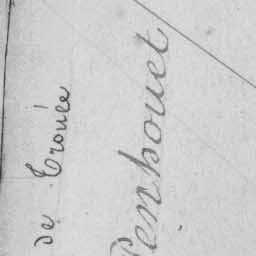 de Trouée
Penhouet